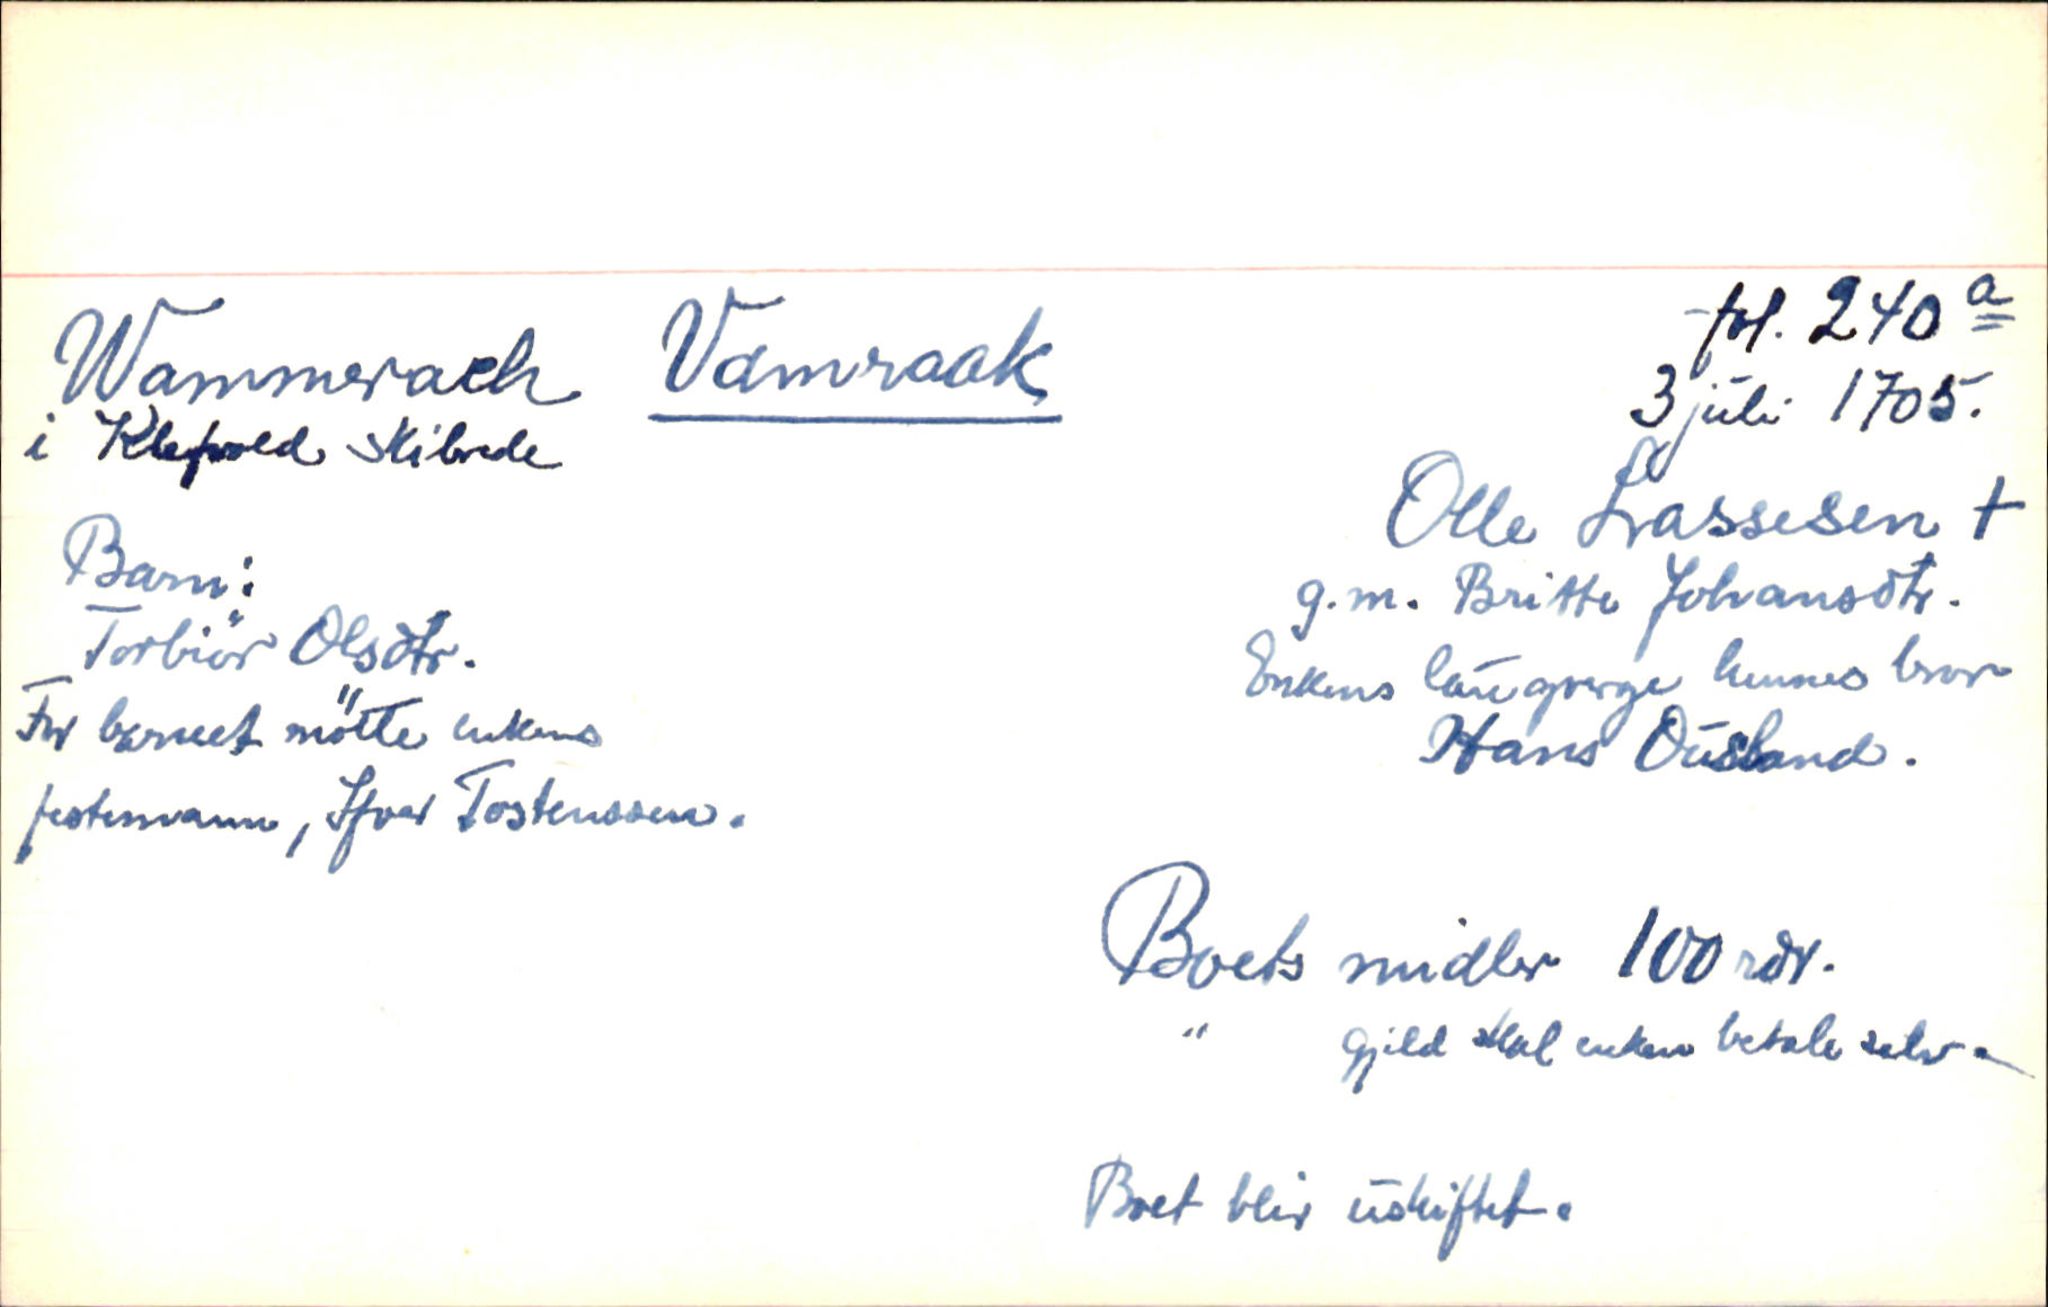 Wammerach Vamraak
i Klepvold skibrede
Barn:
Torbiör Olsdtr.
For barnet mötte enkens
festemann, Ifver Tostenssen.
fol. 240 a
3 juli 1705.
Olle Lassesen +
g.m. Britte Johansdtr.
Enkens laugverge hennes bror
Hans Ousland.
Boets midler 100 rdr.
" Gjeld skal enken betale selv.
Boet blir uskiftet.